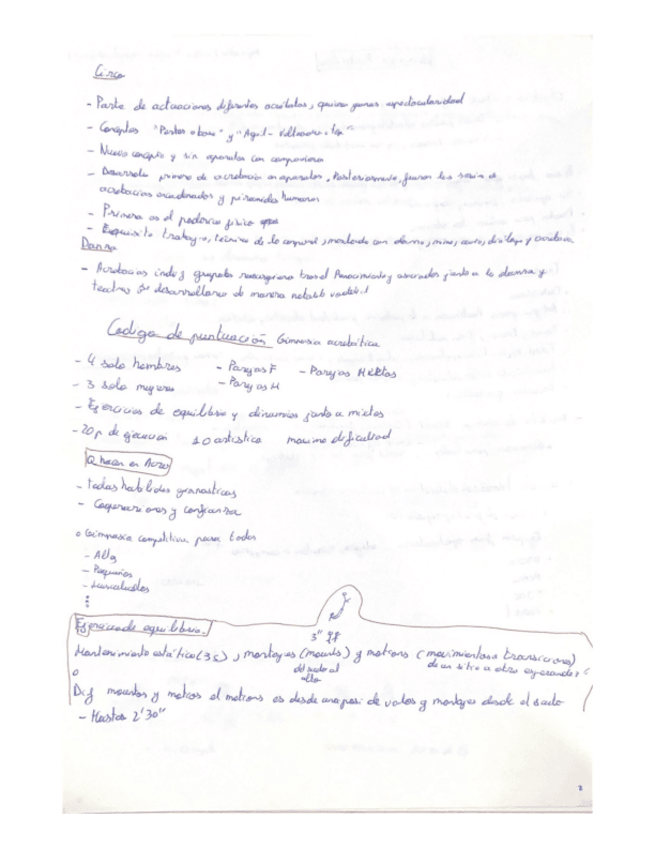 Circo
- Parte de actuaciones diferentes acróbatas, quieren ganar espectacularidad
- Conceptos "Portor o base" y "Agil-Volteador-top"
- Nuevo concepto y sin aparatos con compañeros
- Desarrollo primero de acrobacia en aparatos. Posteriormente, fueron las series de
acrobacias encadenadas y pirámides humanas
- Primero es el poderío físico
- Requisito trabajo, técnica de lo corporal, mezclado con danza, mimo, canto, diálogo y acrobacia
Danza
- Acrobacias indv y grupales resurgieron tras el Renacimiento, asociadas junto a la danza y
teatro se desarrollaron de manera notable
Codigo de puntuación Gimnasia acrobática
- 4 solo hombres - Parejas F - Parejas Mixtas
- 3 solo mujeres - Parejas M
- Ejercicios de equilibrio y dinamicos junto a mixtos
- 20 p de ejecución 10 artistico maximo dificultad
Q hacen en Acro
- todas habilidades gimnasticas
- Cooperaciones y confianza
o Gimnasia competitiva para todos
- Alto
- Pequeños
- Musculados
3"
Ejercicio de equilibrio.
Mantenimiento estático (3s), montajes (mounts) y motions (movimientos o transiciones)
del suelo al
alto
de un sitio a otro
o
Dif mounts y motions el motions es desde una posi de vuelos y montajes desde el suelo
- Hasta 2'30"
2